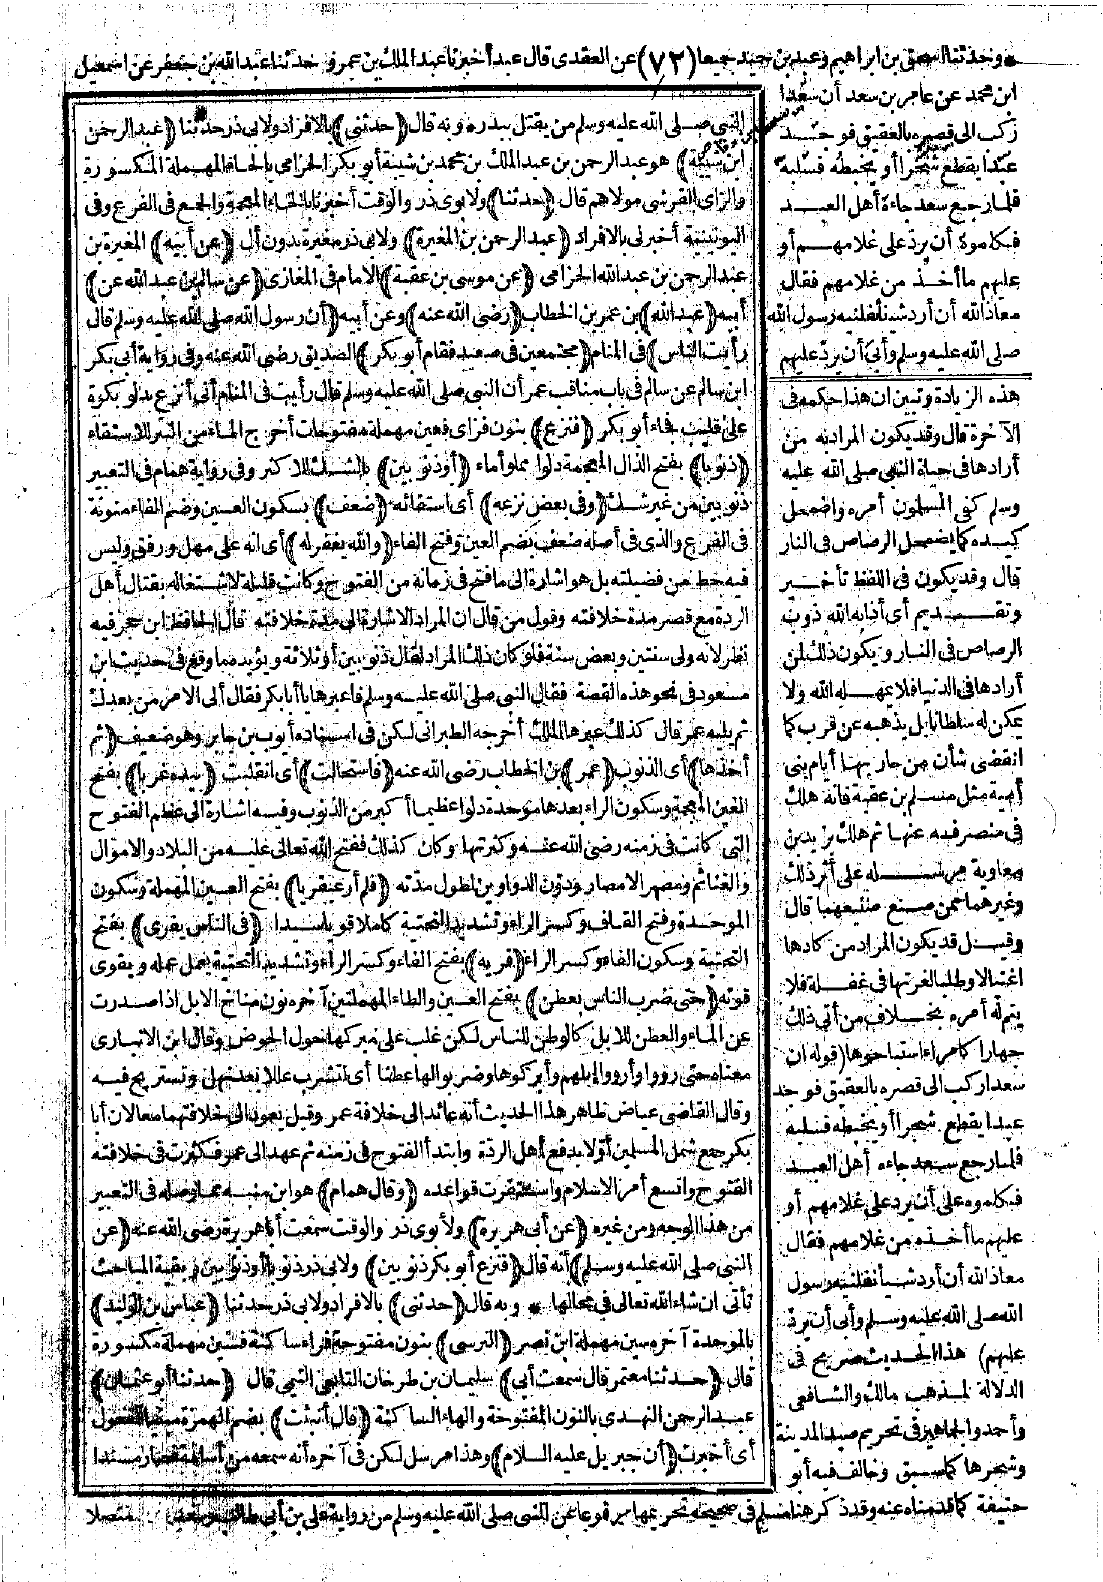 * وحدثنا اسحق بن ابراهيم وعبد بن حميد جميعا (٧٢) عن العقدى قال عبد أخبرنا عبد الملك بن عمرو حدثنا عبد الله بن جعفر عن اسمعيل
ابن محمد عن عامر بن سعد أن سعدا
ركب الى قصره بالعقيق فوجد
عبدا يقطع شجرا أو يخبطه فسلبه
فلما رجع سعد جاءه أهل العبد
فكلموه أن يرد على غلامهم أو
عليهم ما أخذ من غلامهم فقال
معاذ الله أن أرد شيأ نفلنيه رسول الله
صلى الله عليه وسلم وأبى أن يرد عليهم
هذه الزيادة وتبين ان هذا حكمه فى
الآخرة قال وقد يكون المراد به من
أرادها فى حياة النبى صلى الله عليه
وسلم كفى المسلمون أمره واضمحل
كيده كما يضمحل الرصاص فى النار
قال وقد يكون فى اللفظ تأخير
وتقديم أى أذابه الله ذوب
الرصاص فى النار ويكون ذلك لمن
أرادها فى الدنيا فلا يمهله الله ولا
يمكن له سلطانا بل يذهبه عن قرب كما
انقضى شأن من حاربها أيام بنى
أمية مثل مسلم بن عقبة فانه هلك
فى منصرفه عنها ثم هلك يزيد بن
معاوية مرسله على أثر ذلك
وغيرهما ممن صنع صنيعهما قال
وقيل قد يكون المراد من كادها
اغتيالا وطلبا لغرتها فى غفلة فلا
يتم له أمره بخلاف من أتى ذلك
جهارا كأمراء استباحوها (قوله ان
سعدا ركب الى قصره بالعقيق فوجد
عبدا يقطع شجرا أو يخبطه فسلبه
فلما رجع سعد جاءه أهل العبد
فكلموه على أن يرد على غلامهم أو
عليهم ما أخذه من غلامهم فقال
معاذ الله أن أرد شيأ نفلنيه رسول
الله صلى الله عليه وسلم وأبى أن يرد
عليهم) هذا الحديث صريح فى
الدلالة لمذهب مالك والشافعى
وأحمد والجماهير فى تحريم صيد المدينة
وشجرها كما سبق وخالف فيه أبو
حنيفة كما قدمناه عنه وقد ذكر هنا مسلم فى صحيحه تحريمها مرفوعا عن النبى صلى الله عليه وسلم من رواية على بن أبى طالب وسعد متصلا
النبى صلى الله عليه وسلم من يقتل بيدره وبه قال (حدثنى) بالافراد ولابى ذر حدثنا (عبد الرحمن
ابن شيبة) هو عبد الرحمن بن عبد الملك بن محمد بن شيبة أبو بكر الحزامى بالحاء المهملة المكسورة
والزاى القرشى مولاهم قال (حدثنا) ولابوى ذر والوقت أخبرنا بالخاء المعجمة والجمع فى الفرع وفى
اليونينية أخبرنى بالافراد (عبد الرحمن بن المغيرة) ولابى ذر مغيرة بدون أل (عن أبيه) المغيرة بن
عبد الرحمن بن عبد الله الحزامى (عن موسى بن عقبة) الامام فى المغازى (عن سالم بن عبد الله عن)
أبيه (عبد الله) بن عمر بن الخطاب (رضى الله عنه) وعن أبيه (أن رسول الله صلى الله عليه وسلم قال
رأيت الناس) فى المنام (مجتمعين فى صعيد فقام أبو بكر) الصديق رضى الله عنه وفى رواية أبى بكر
ابن سالم عن سالم فى باب مناقب عمر أن النبى صلى الله عليه وسلم قال رأيت فى المنام أنى أنزع بدلو بكرة
على قليب فجاء أبو بكر (فنزع) بنون فزاى فعين مهملة مفتوحات أخرج الماء من البئر للاستقاء
(ذنوبا) بفتح الذال المعجمة دلوا مملوأ ماء (أو ذنوبين) بالشك للاكثر وفى رواية همام فى التعبير
ذنوبين من غير شك (وفى بعض نزعه) أى استقائه (ضعف) بسكون العين وضم الفاء منونة
فى الفرع والذى فى أصله ضعف بضم العين وفتح الفاء (والله يغفر له) أى انه على مهل ورفق وليس
فيه حط من فضيلته بل هو اشارة الى ما فتح فى زمانه من الفتوح وكانت قليلة لاشتغاله بقتال أهل
الردة مع قصر مدة خلافته وقول من قال ان المراد الاشارة الى مدة خلافته قال الحافظ ابن حجر فيه
نظر لانه ولى سنتين وبعض سنة فلو كان ذلك المراد لقال ذنوبين أو ثلاثة ويؤيده ما وقع فى حديث ابن
مسعود فى نحو هذه القصة فقال النبى صلى الله عليه وسلم فاعبرها يا أبا بكر فقال ألى الامر من بعدك
ثم يليه عمر قال كذلك عبرها الملك أخرجه الطبرانى لكن فى اسناده أيوب بن جابر وهو ضعيف (ثم
أخذها) أى الذنوب (عمر) بن الخطاب رضى الله عنه (فاستحالت) أى انقلبت (بيده غربا) بفتح
الغين المعجمة وسكون الراء بعدها موحدة دلوا عظيما أكبر من الذنوب وفيه اشارة الى عظم الفتوح
التى كانت فى زمنه رضى الله عنه وكثرتها وكان كذلك ففتح الله تعالى عليه من البلاد والاموال
والغنائم ومصر الامصار ودون الدواوين لطول مدته (فلم أر عبقريا) بفتح العين المهملة وسكون
الموحدة وفتح القاف وكسر الراء وتشديد التحتية كاملا قويا سيدا (فى الناس يفرى) بفتح
التحتية وسكون الفاء وكسر الراء (فريه) بفتح الفاء وكسر الراء وتشديد التحتية يعمل عمله ويقوى
قوته (حتى ضرب الناس بعطن) بفتح العين والطاء المهملتين آخره نون مناخ الابل اذا صدرت
عن الماء والعطن للابل كالوطن للناس لكن غلب على مبركها حول الحوض وقال ابن الانبارى
معناه حتى رووا وأرووا إبلهم وأبركوها وضربوا لها عطنا أى لتشرب عللا بعد نهل وتستريح فيه
وقال القاضى عياض ظاهر هذا الحديث أنه عائد الى خلافة عمر وقيل يعود الى خلافتهما معا لان أبا
بكر جمع شمل المسلمين أولا بدفع أهل الردة وابتدأ الفتوح فى زمنه ثم عهد الى عمر فكثرت فى خلافته
الفتوح واتسع أمر الاسلام واستقرت قواعده (وقال همام) هو ابن منبه مما وصله فى التعبير
من هذا الوجه ومن غيره (عن أبى هريرة) ولابوى ذر والوقت سمعت أبا هريرة رضى الله عنه (عن
النبى صلى الله عليه وسلم) أنه قال (فنزع أبو بكر ذنوبين) ولابى ذر ذنوبا أو ذنوبين وبقية المباحث
تأتى ان شاء الله تعالى فى محالها * وبه قال (حدثنى) بالافراد ولابى ذر حدثنا (عباس بن الوليد)
بالموحدة آخره سين مهملة ابن نصر (النرسى) بنون مفتوحة فراء ساكنة فسين مهملة مكسورة
قال (حدثنا معتمر قال سمعت أبى) سليمان بن طرخان التابعى التيمى قال (حدثنا أبو عثمان)
عبد الرحمن النهدى بالنون المفتوحة والهاء الساكنة (قال أنبئت) بضم الهمزة مبنيا للمفعول
أى أخبرت (أن جبريل عليه السلام) وهذا مرسل لكن فى آخره أنه سمعه من أسامة فصار مسندا